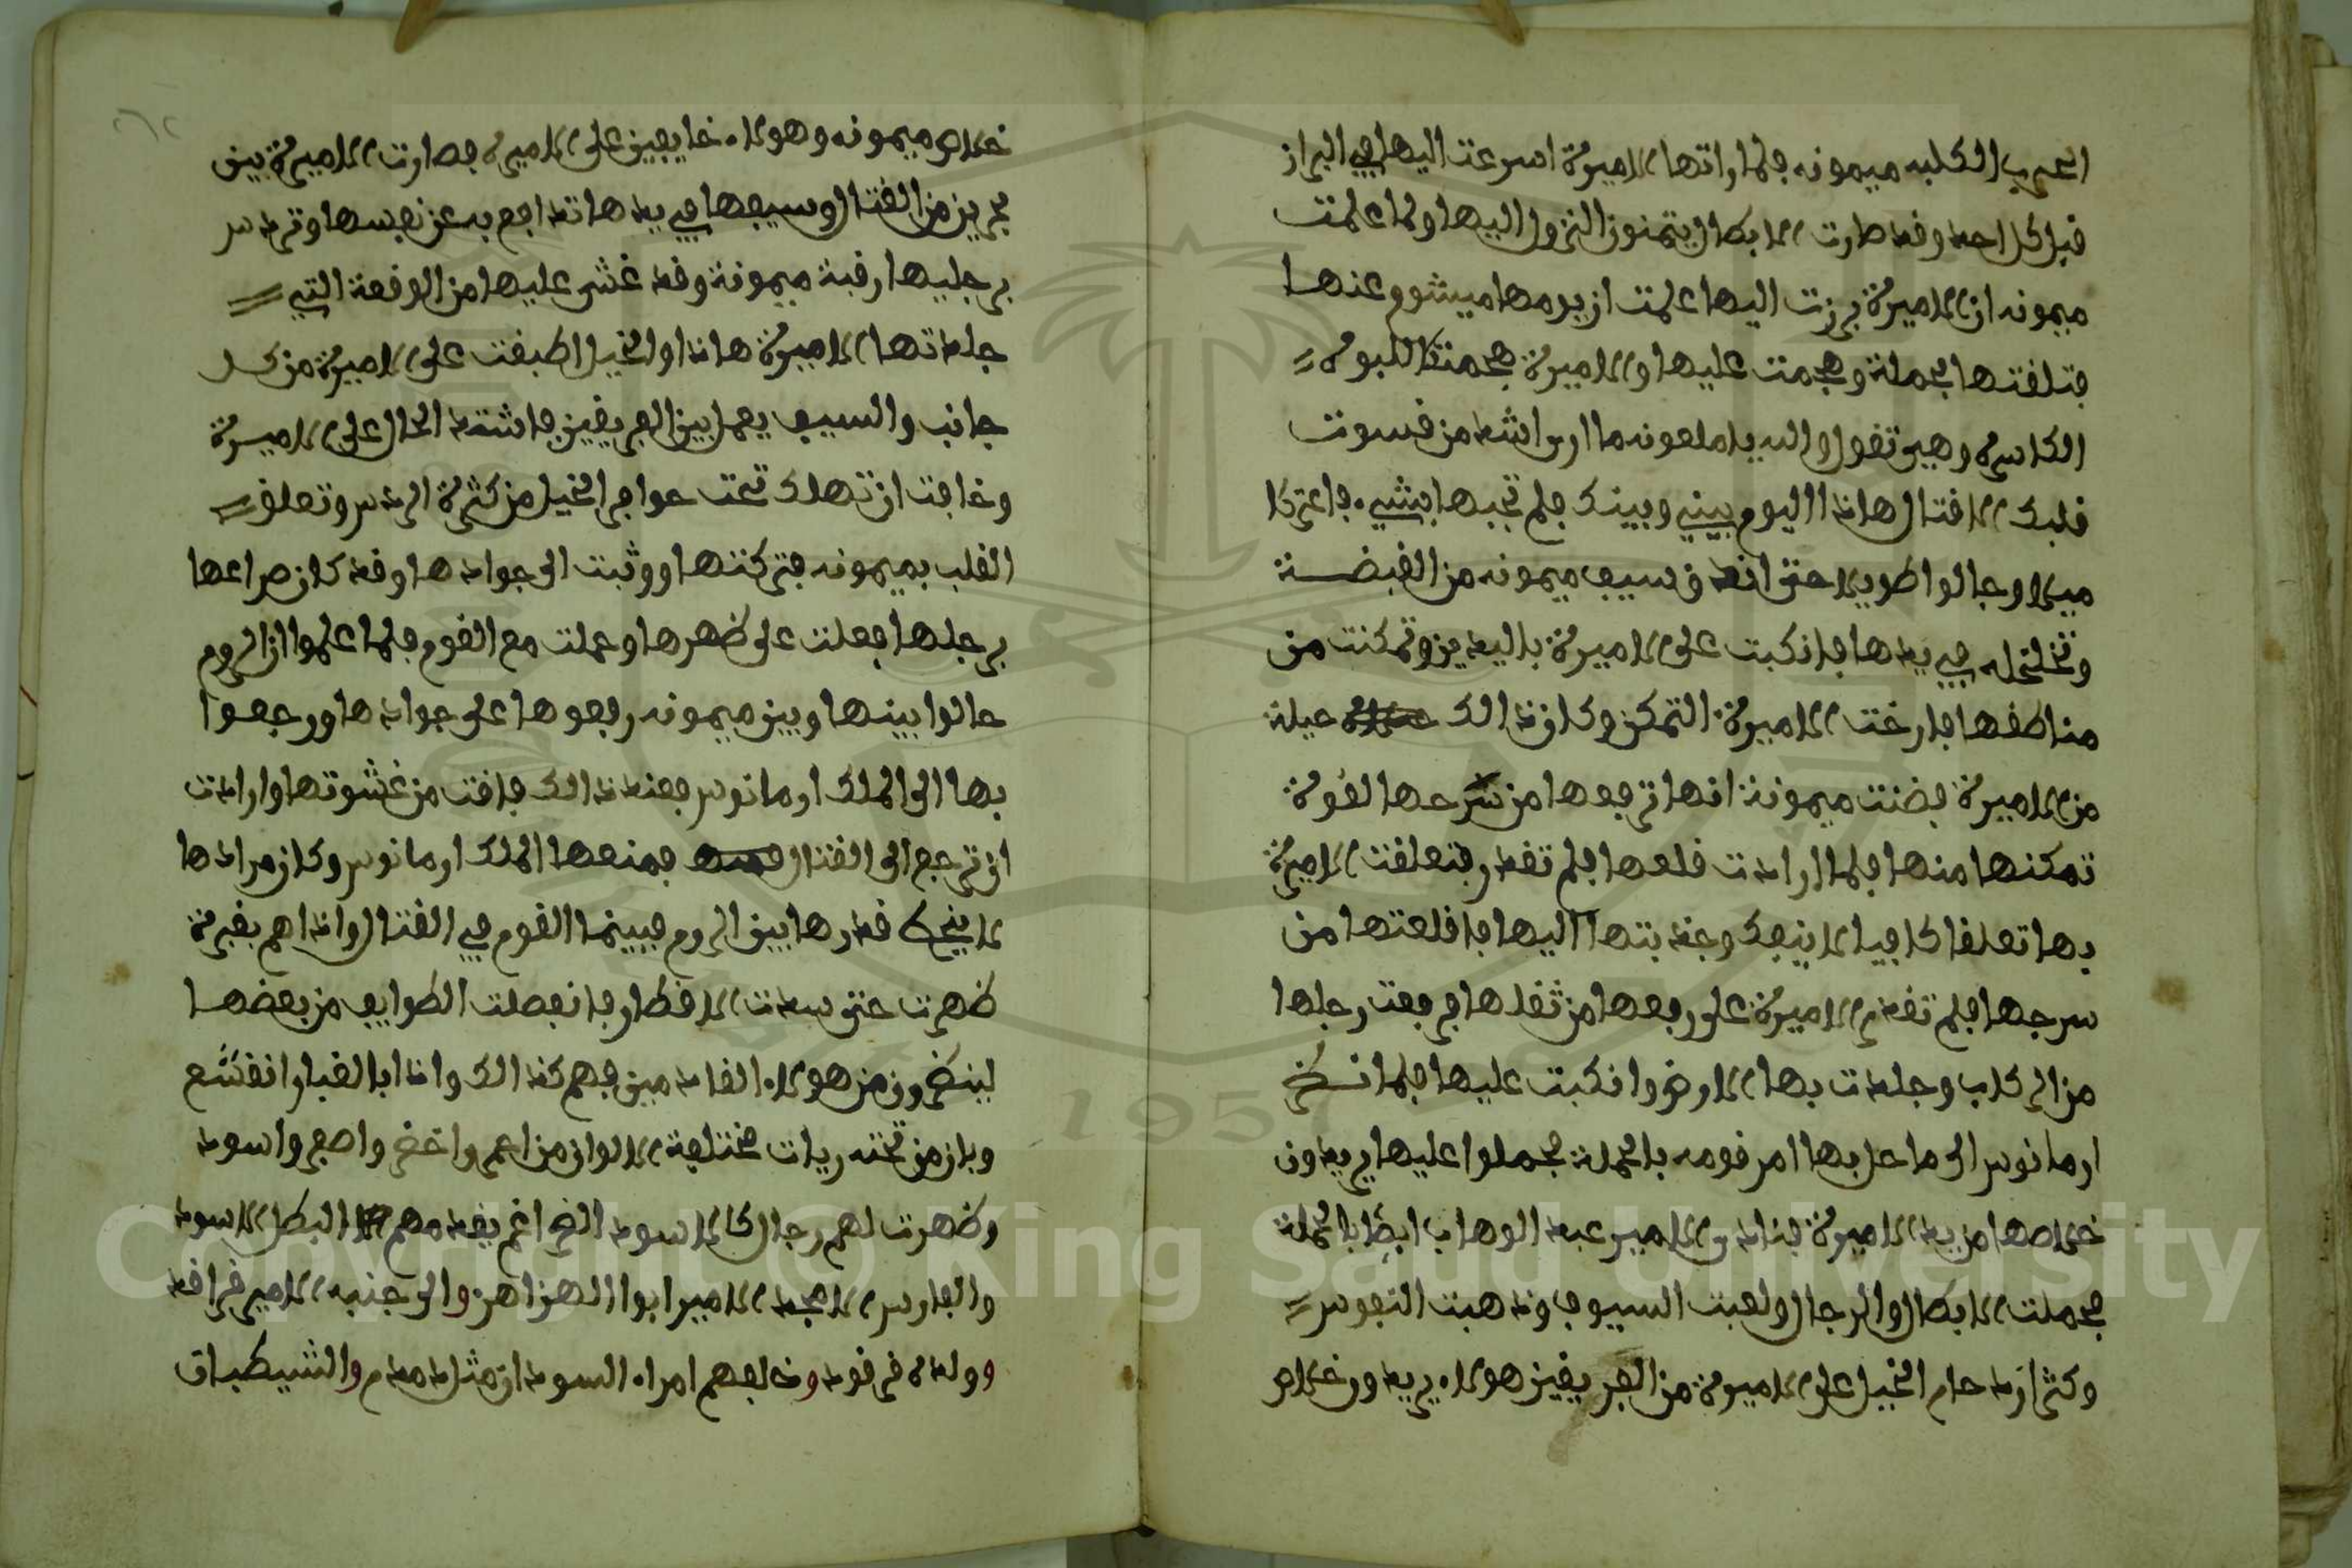 العرب الكلبه ميمونه فلما راتها الاميرة اسرعت اليها في البراز
قبل كل احد وقد طارت الابطال يتمنون النزول اليها ولما علمت
ميمونه ان الاميرة برزت اليها علمت ان يومها ميشووم عنها
فتلقتها بحملة وهجمت عليها والاميرة هجمت كاللبوة
الكاسرة وهي تقول والله يا ملعونه ما ارى اشد من قسوت
قلبك الا قتال هاذا اليوم بيني وبينك فلم تجبها بشيء فاعتركا
ميلا وجالوا طويلا حتى اندق سيف ميمونه من القبضة
وتخلخله في يدها فانكبت على الاميرة باليدين وتمكنت من
مناطقها فارخت الاميرة التمكن وكان ذالك حيلة
من الاميرة فضنت ميمونة انها ترفعها من سرجها لقوة
تمكنها منها فلما ارادت قلعها فلم تقدر فتعلقت الاميرة
بها تعلقا كافيا لا ينفك وجذبتها اليها فاقلعتها من
سرجها فلم تقدم الاميرة على رفعها من ثقلها فرفعت رجلها
من الركاب وجلدت بها الارض وانكبت عليها فلما نضر
ارمانوس الى ما حل بها امر قومه بالحملة فحملوا عليها يريدون
خلاصها من يد الاميرة فنادى الامير عبد الوهاب ايضا بالحملة
فحملت الابطال والرجال ولعبت السيوف وذهبت النفوس
وكثر ازدحام الخيل على الاميرة من الفريقين هولاء يريدون خلاص
خلاص ميمونه وهولاء خايفين على الاميرة فصارت الاميرة بين
برين من القتال وسيفها في يدها تدافع به عن نفسها وتردس
برجليها رقبة ميمونة وقد غشى عليها من الوقعة التي
جلدتها الاميرة هاذا والخيل اطبقت على الاميرة من كل
جانب والسيف يعمل بين الفريقين فاشتد الحال على الاميرة
وخافت ان تهلك تحت حوافر الخيل من كثرة الردس وتعلق
القلب بميمونه فتركتها ووثبت الى جوادها وقد كان صراعها
برجلها فعلت على ضهرها وحملت مع القوم فلما علموا ان الروم
حالوا بينها وبين ميمونه رفعوها على جوادها ورجعوا
بها الى الملك ارمانوس فعند ذالك فاقت من غشوتها وارادت
ان ترجع الى القتال فمنعها الملك ارمانوس وكان مرادها
لا ينحط قدرها بين الروم فبينما القوم في القتال واذا هم بغبرة
ضهرت حتى سدت الاقطار فانفصلت الطوايف من بعضها
لينضرون من هولاء القادمين فهم كذالك واذا بالغبار انقشع
وبان من تحته ريات مختلفة الالوان من احمر واخضر واصفر واسود
وضهرت لهم رجال كالاسود الضراغم يقدمهم البطل الاسود
والفارس الامجد الامير ابوا الهزاهز والى جنبه الامير قراقد
وولده قرقود وخلفهم امراء السودان مثل دمدم والشيطباق